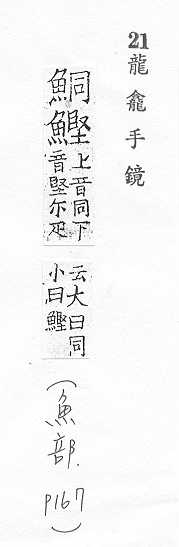 21 龍龕手鏡
鮦鰹
上音同下
音堅尓疋
云大曰同
小曰鰹
(魚部. P167)